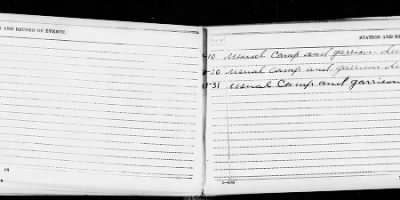 AND RECORD OF EVENTS.
STATION AND RE
-10 Usual Camp and garrison du
-20 Usual Camp and garrison du
-31 Usual Camp and garriso